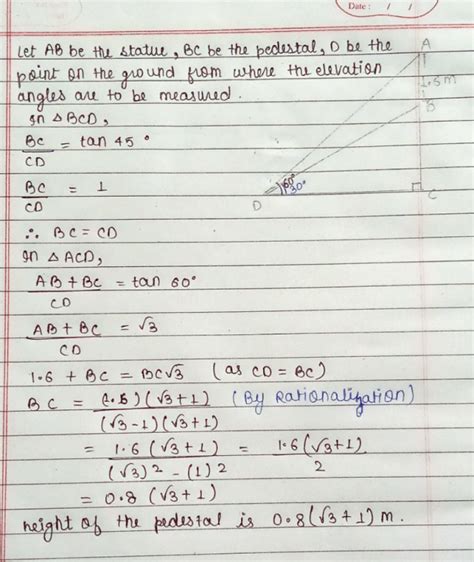 Date : / /
Let AB be the statue, BC be the pedestal, D be the
point on the ground from where the elevation
angles are to be measured.
In △BCD,
BC/CD = tan 45°
BC/CD = 1
∴ BC = CD
In △ACD,
AB + BC/CD = tan 60°
AB + BC/CD = √3
1.6 + BC = BC√3 (as CD = BC)
BC = (1.6)(√3+1)/(√3-1)(√3+1) (By Rationalization)
= 1.6(√3+1)/(√3)2 - (1)2 = 1.6(√3+1)/2
= 0.8(√3+1)
height of the pedestal is 0.8(√3+1) m.
A
B
60°
30°
D
C